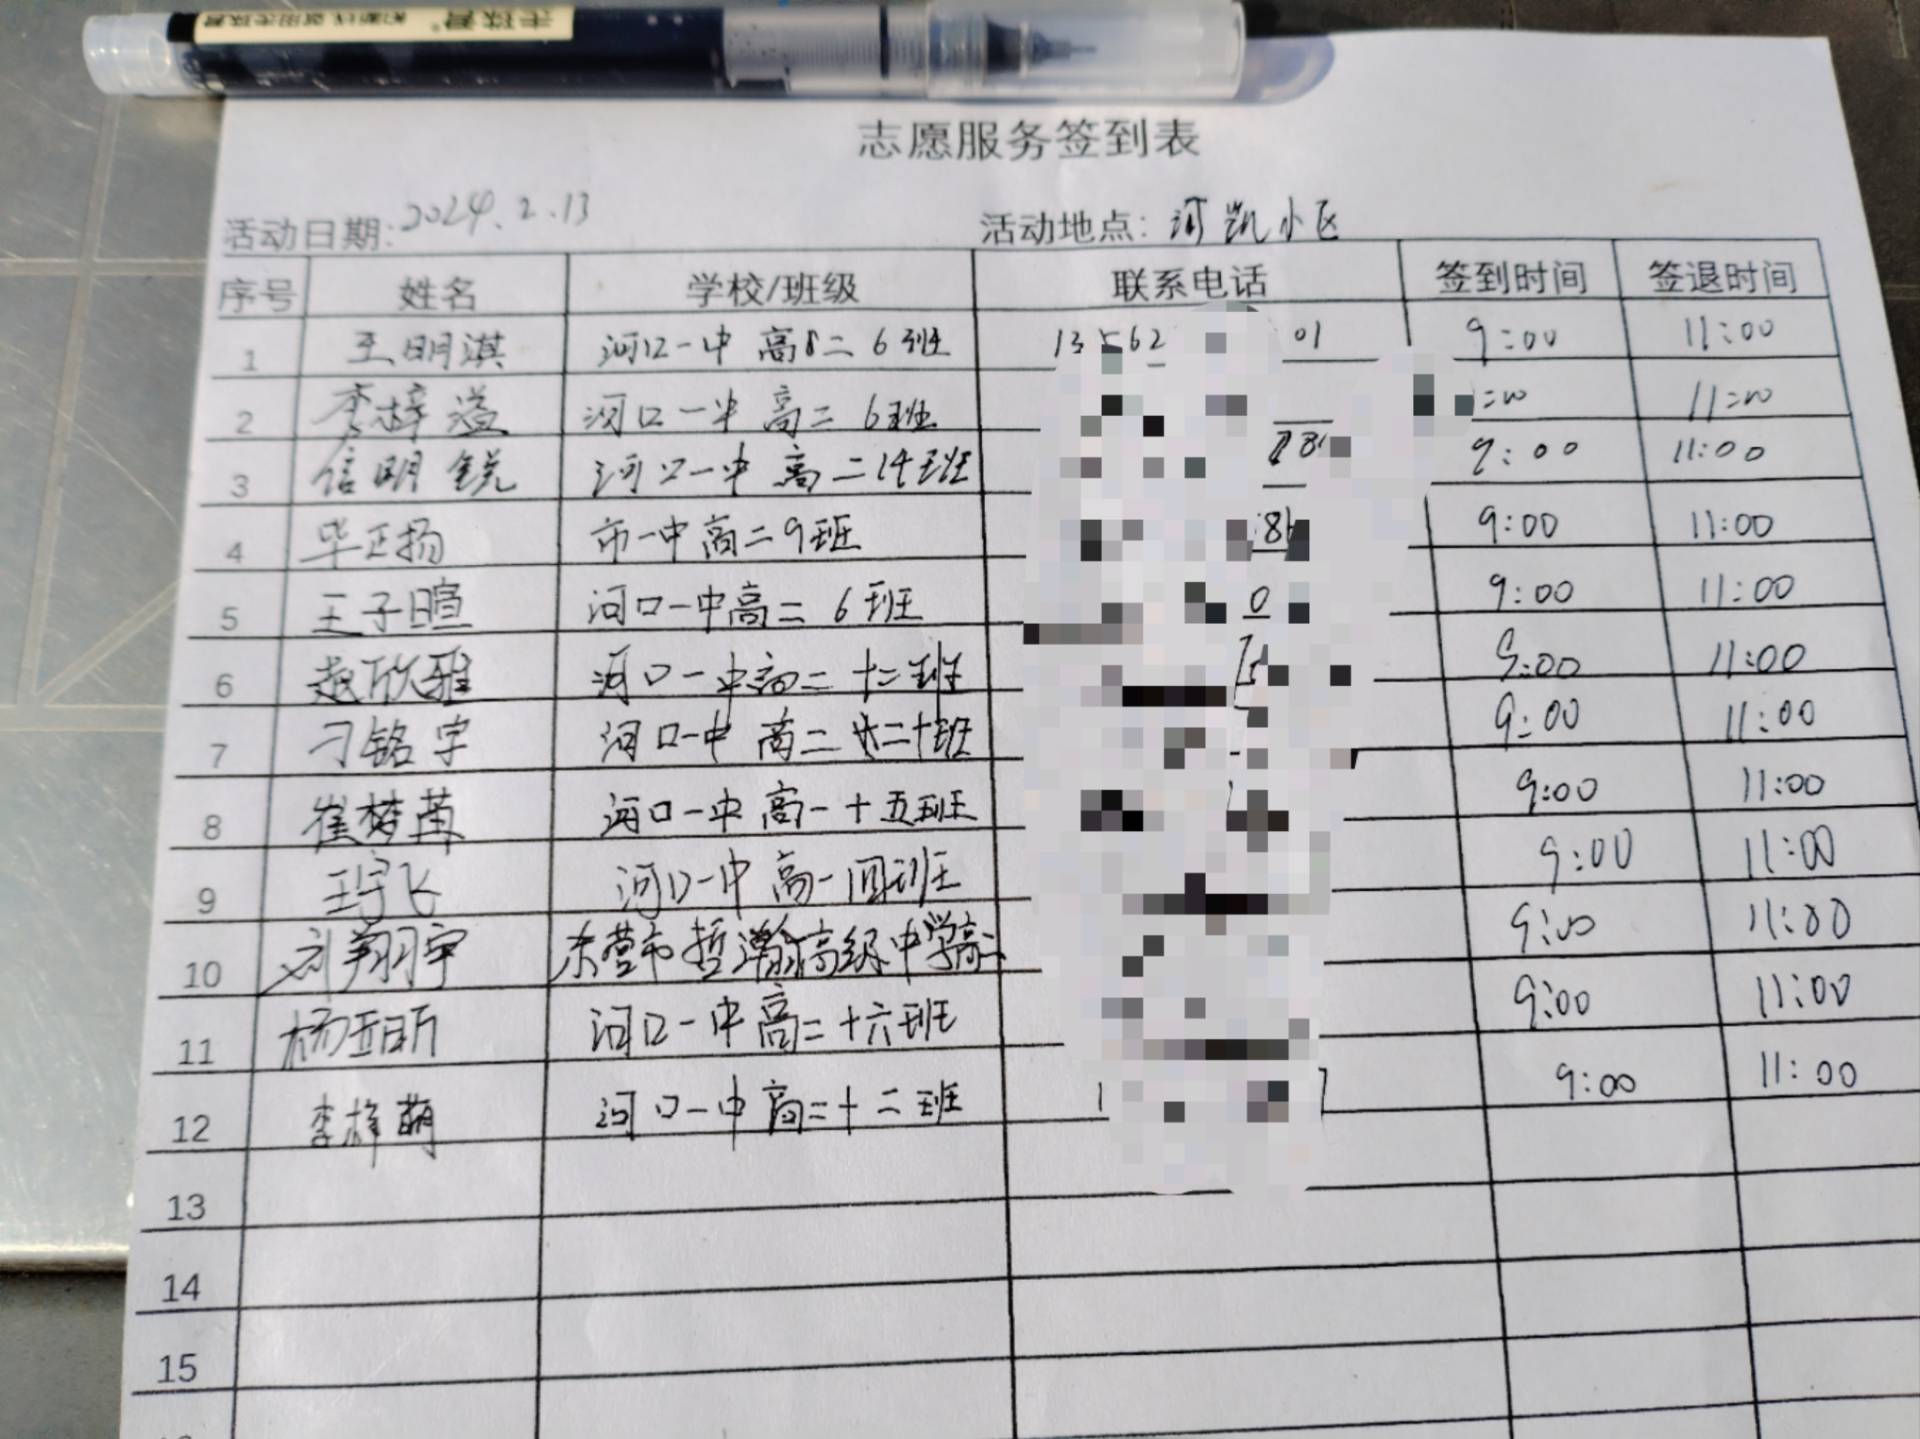 志愿服务签到表
活动日期: 2024.2.13 活动地点: 河凯小区
序号 姓名 学校/班级 联系电话 签到时间 签退时间
1 王明淇 河口一中 高二 6班 13562 01 9:00 11:00
2 李梓溢 河口一中 高二 6班 11:00
3 信明锐 河口一中 高二14班 9:00 11:00
4 毕正扬 市一中高二9班 9:00 11:00
5 王子暄 河口一中高二 6班 0 9:00 11:00
6 赵欣雅 河口一中高二 十二班 9:00 11:00
7 刁铭宇 河口一中 高二 二十班 9:00 11:00
8 崔梦苗 河口一中 高一十五班 9:00 11:00
9 王宇飞 河口一中 高一四班 9:00 11:00
10 刘翔宇 东营市哲瀚高级中学高二 9:00 11:00
11 杨亚昕 河口一中高二十六班 9:00 11:00
12 李梓萌 河口一中高二十二班 9:00 11:00
13
14
15